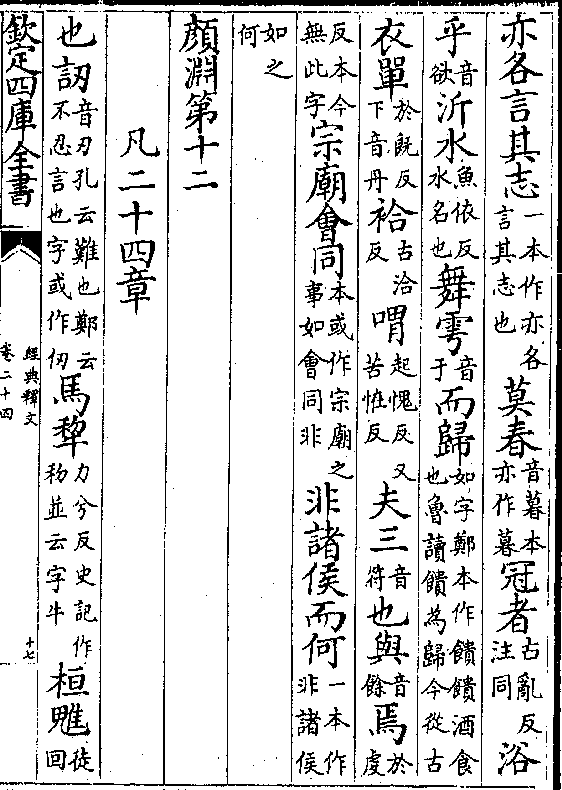 亦各言其志一本作亦各言其志也莫春音暮本亦作暮冠者古亂反注同浴
乎音欲沂水魚依反水名也舞雩音于而歸如字鄭本作饋饋酒食也魯讀饋為歸今從古
衣單於既反下音丹袷古洽反喟起愧反又苦怪反夫三音符也與音餘焉於虔
反本今無此字宗廟會同本或作宗廟之事如會同非非諸侯而何一本作非諸侯
如之何
顏淵第十二
凡二十四章
也訒音刃孔云難也鄭云不忍言也字或作仞馬犂力兮反史記作秎並云字牛桓魋徒回
欽定四庫全書
經典釋文
卷二十四
十七